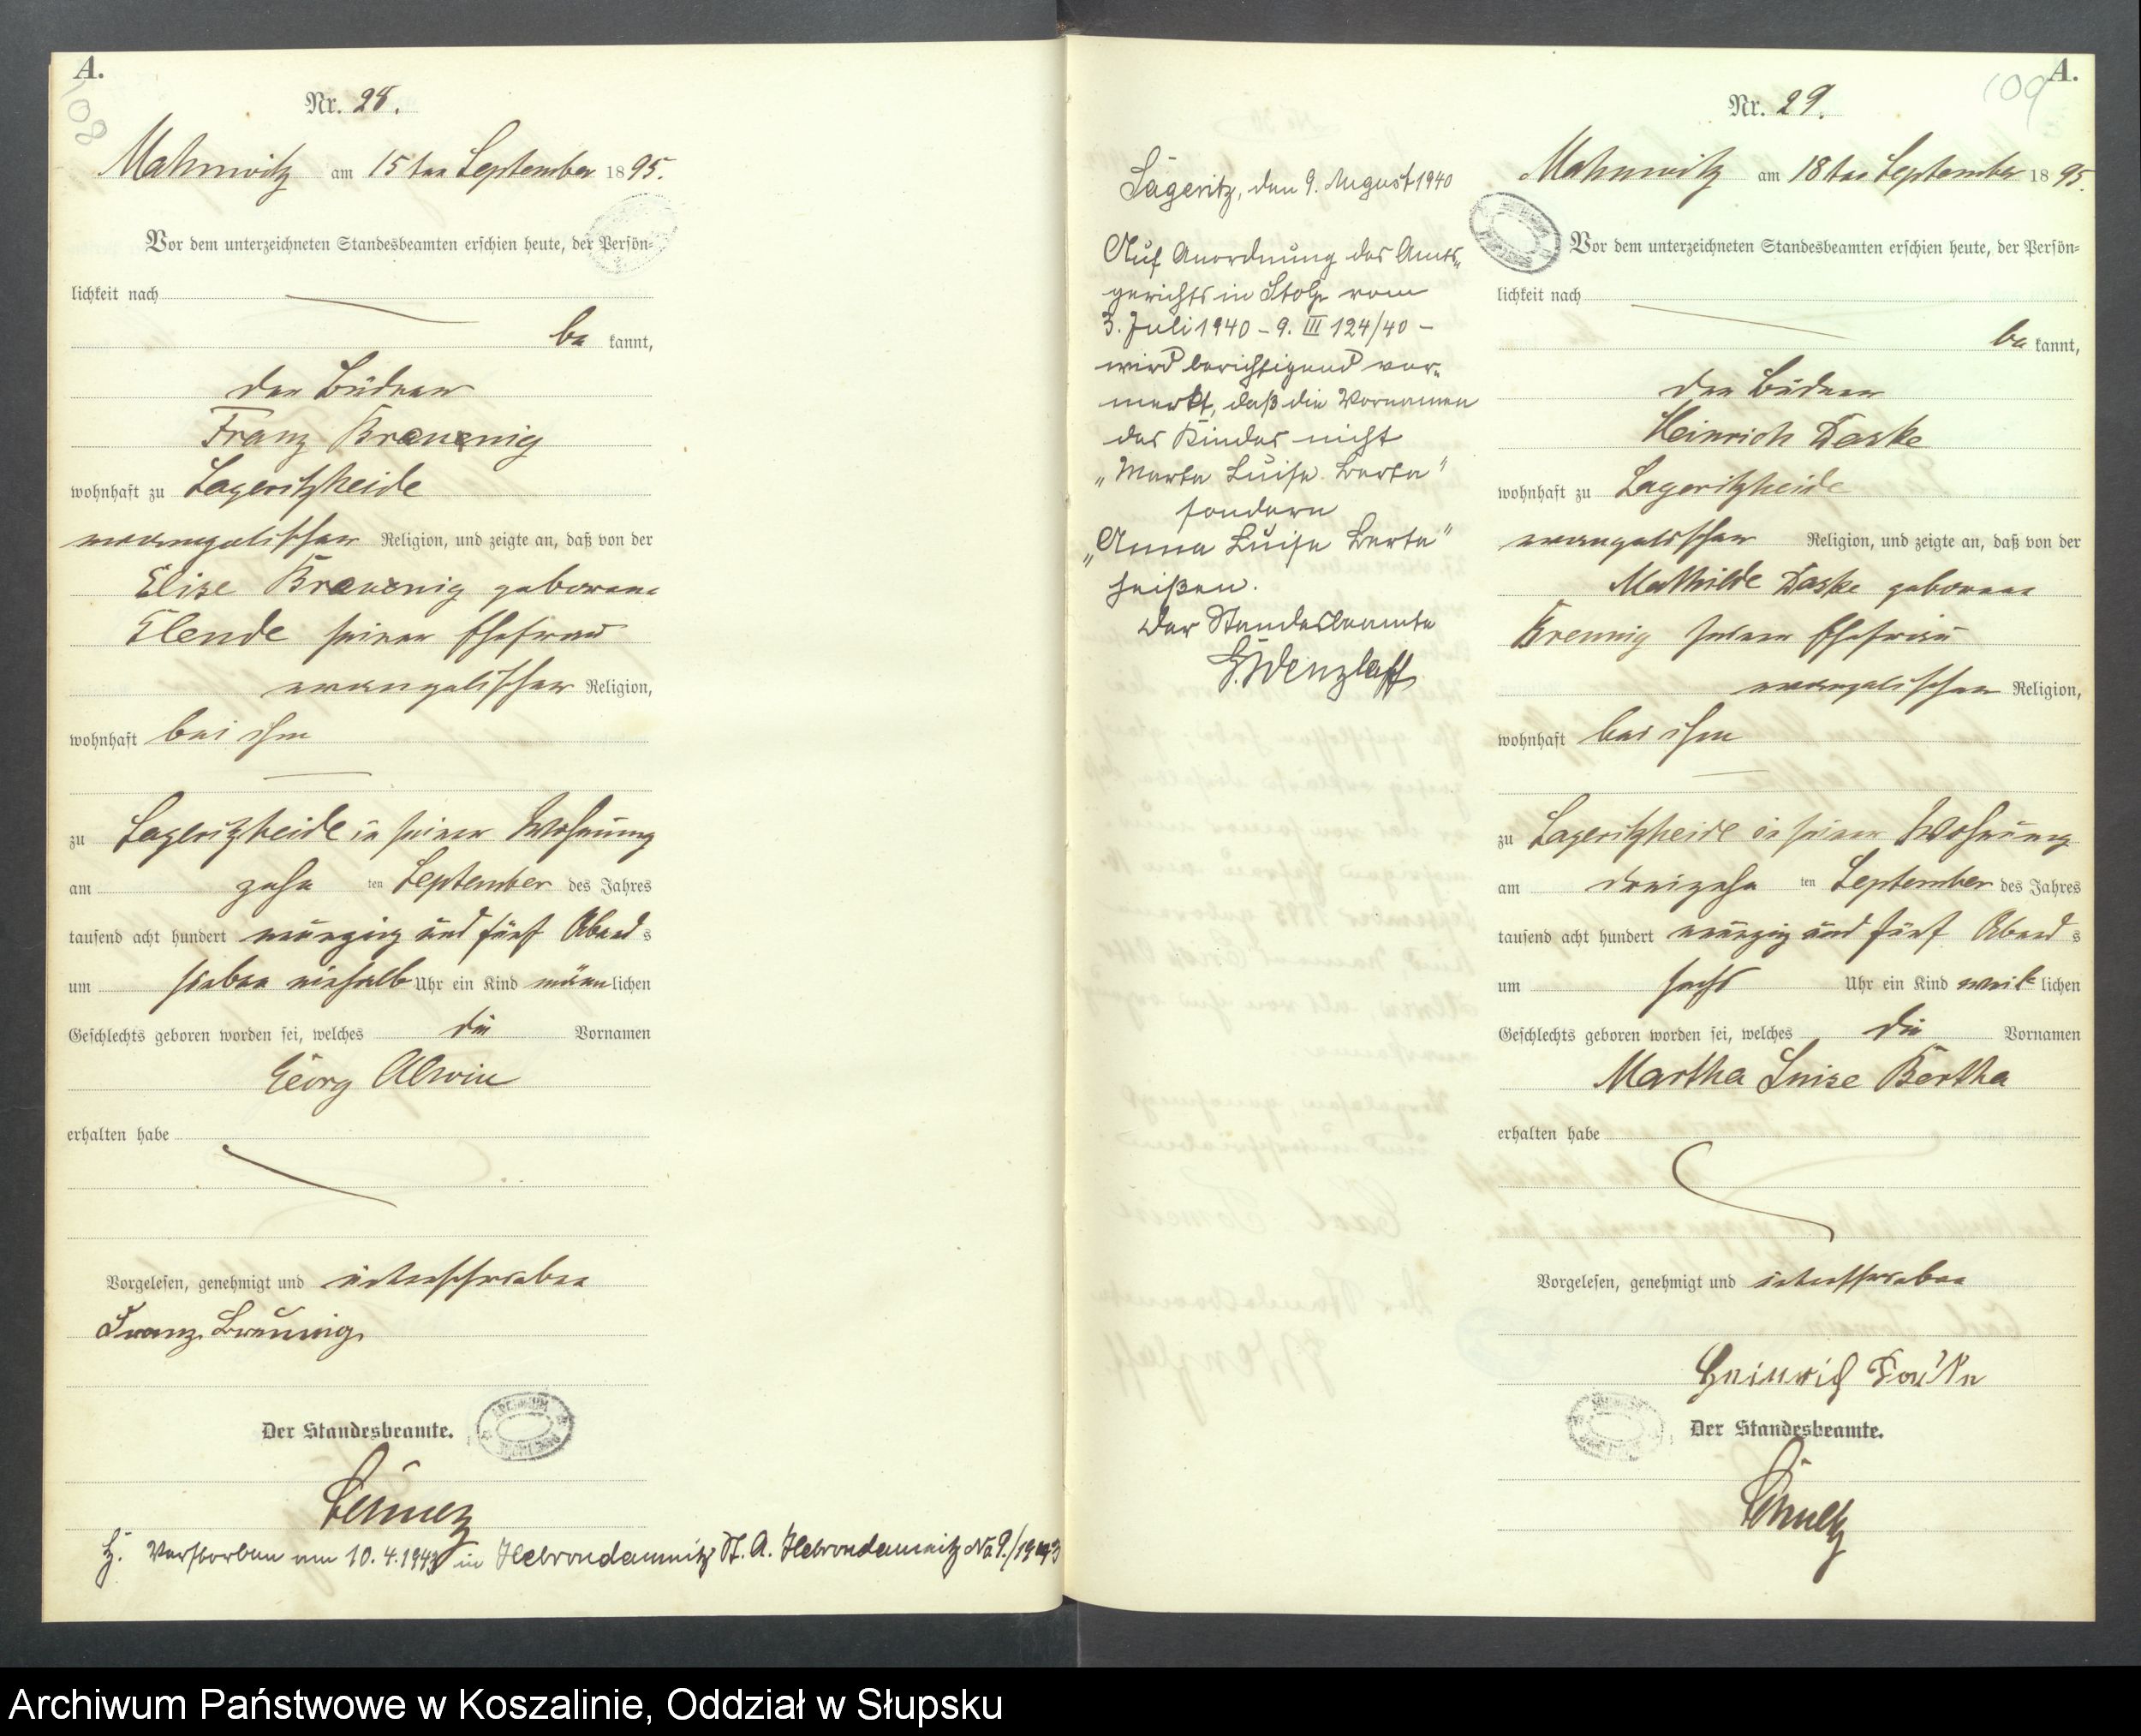 A.
108
Nr. 28.
Mahnwitz am 15ten September 1895.
Vor dem unterzeichneten Standesbeamten erschien heute, der Persön-
lichkeit nach
be kannt,
der Büdner
Franz Breunig
wohnhaft zu Lageritzheide
evangelischer Religion, und zeigte an, daß von der
Elise Breunig geborene
Elende seiner Ehefrau
evangelischer Religion,
wohnhaft bei ihm
zu Lageritzheide in seiner Wohnung
am zehn ten September des Jahres
tausend acht hundert neunzig und fünf Abend s
um sieben einhalb Uhr ein Kind männ lichen
Geschlechts geboren worden sei, welches die Vornamen
Georg Alwin
erhalten habe
Vorgelesen, genehmigt und unterschrieben
Franz Breunig
Der Standesbeamte.
H. Verstorben am 10.4.1943 in Hebrondamnitz St. A. Hebrondamnitz No 9./1943
A.
109
Nr. 29.
Lageritz, den 9. August 1940
Auf Anordnung des Amts-
gerichts in Stolp vom
3. Juli 1940 – 9. III 124/40 –
wird berichtigend ver-
merkt, daß die Vornamen
des Kindes nicht
„Marta Luise Berta"
sondern
„Anna Luise Berta"
heißen.
Der Standesbeamte
Wenzlaff
Mahnwitz am 18ten September 1895.
Vor dem unterzeichneten Standesbeamten erschien heute, der Persön-
lichkeit nach
be kannt,
der Büdner
Heinrich Taske
wohnhaft zu Lageritzheide
evangelischer Religion, und zeigte an, daß von der
Mathilde Taske geborene
Brennig seiner Ehefrau
evangelischer Religion,
wohnhaft bei ihm
zu Lageritzheide in seiner Wohnung
am dreizehn ten September des Jahres
tausend acht hundert neunzig und fünf Abend s
um sechs Uhr ein Kind weib lichen
Geschlechts geboren worden sei, welches die Vornamen
Martha Luise Bertha
erhalten habe
Vorgelesen, genehmigt und unterschrieben
Heinrich Taske
Der Standesbeamte.
Archiwum Państwowe w Koszalinie, Oddział w Słupsku